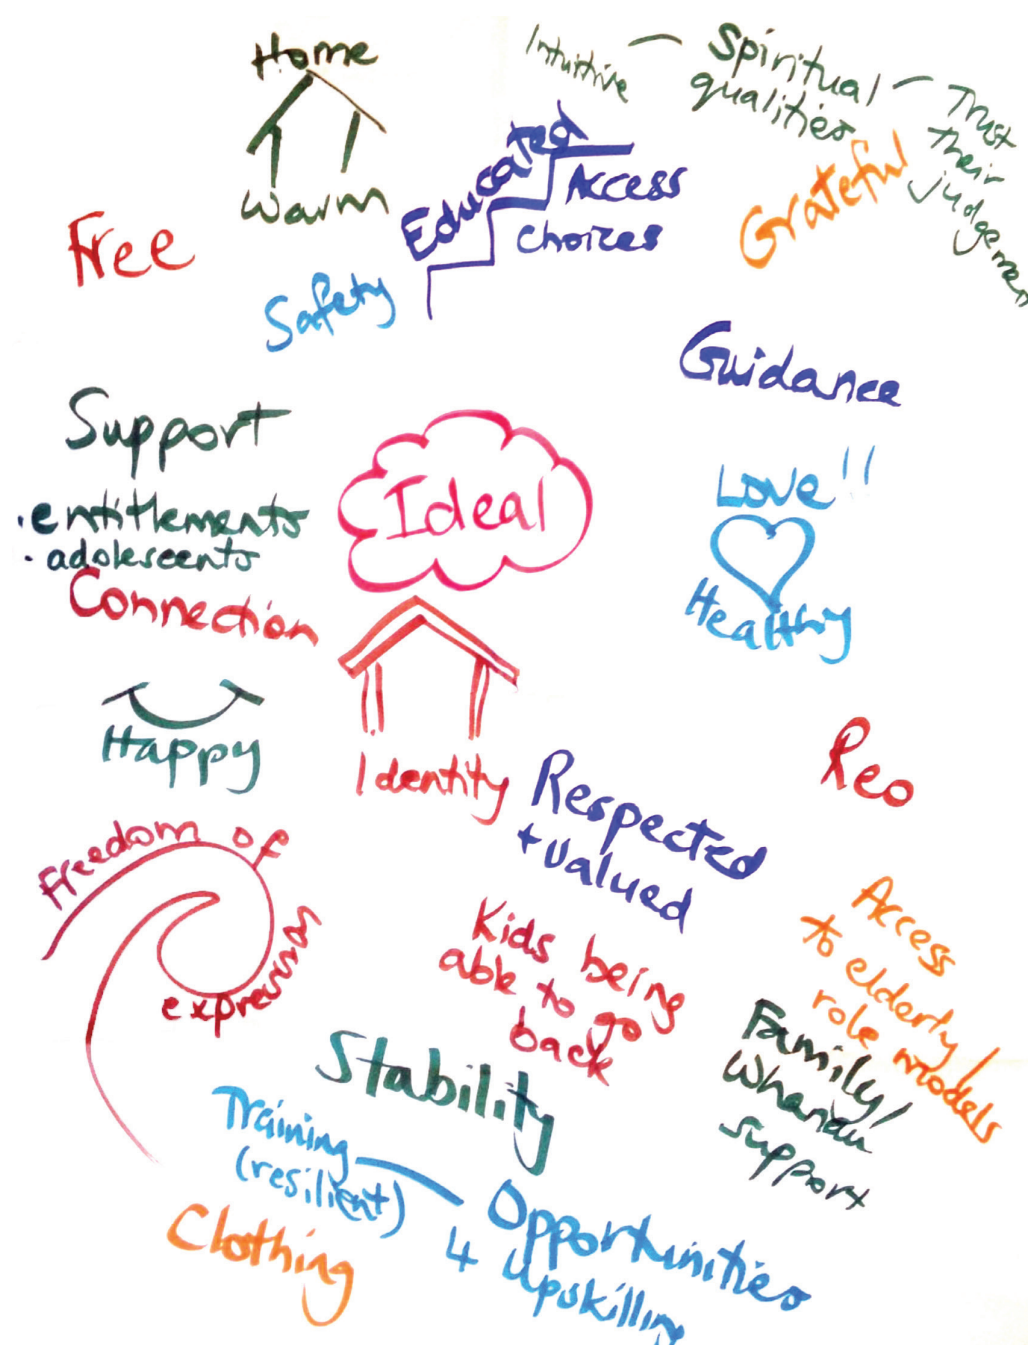 Home
Warm
Intuitive — Spiritual
qualities — Trust
their
judgemen
Educated
Access
choices
Grateful
Free
Safety
Guidance
Support
• entitlements
• adolescents
Connection
Ideal
Love!!
Healthy
Happy
Identity
Reo
Respected
+ valued
Freedom of
expression
Kids being
able to go
back
Access
to elderly/
role models
Family/
Whanau
support
Stability
Training
(resilient)
Opportunities
4 Upskilling
Clothing